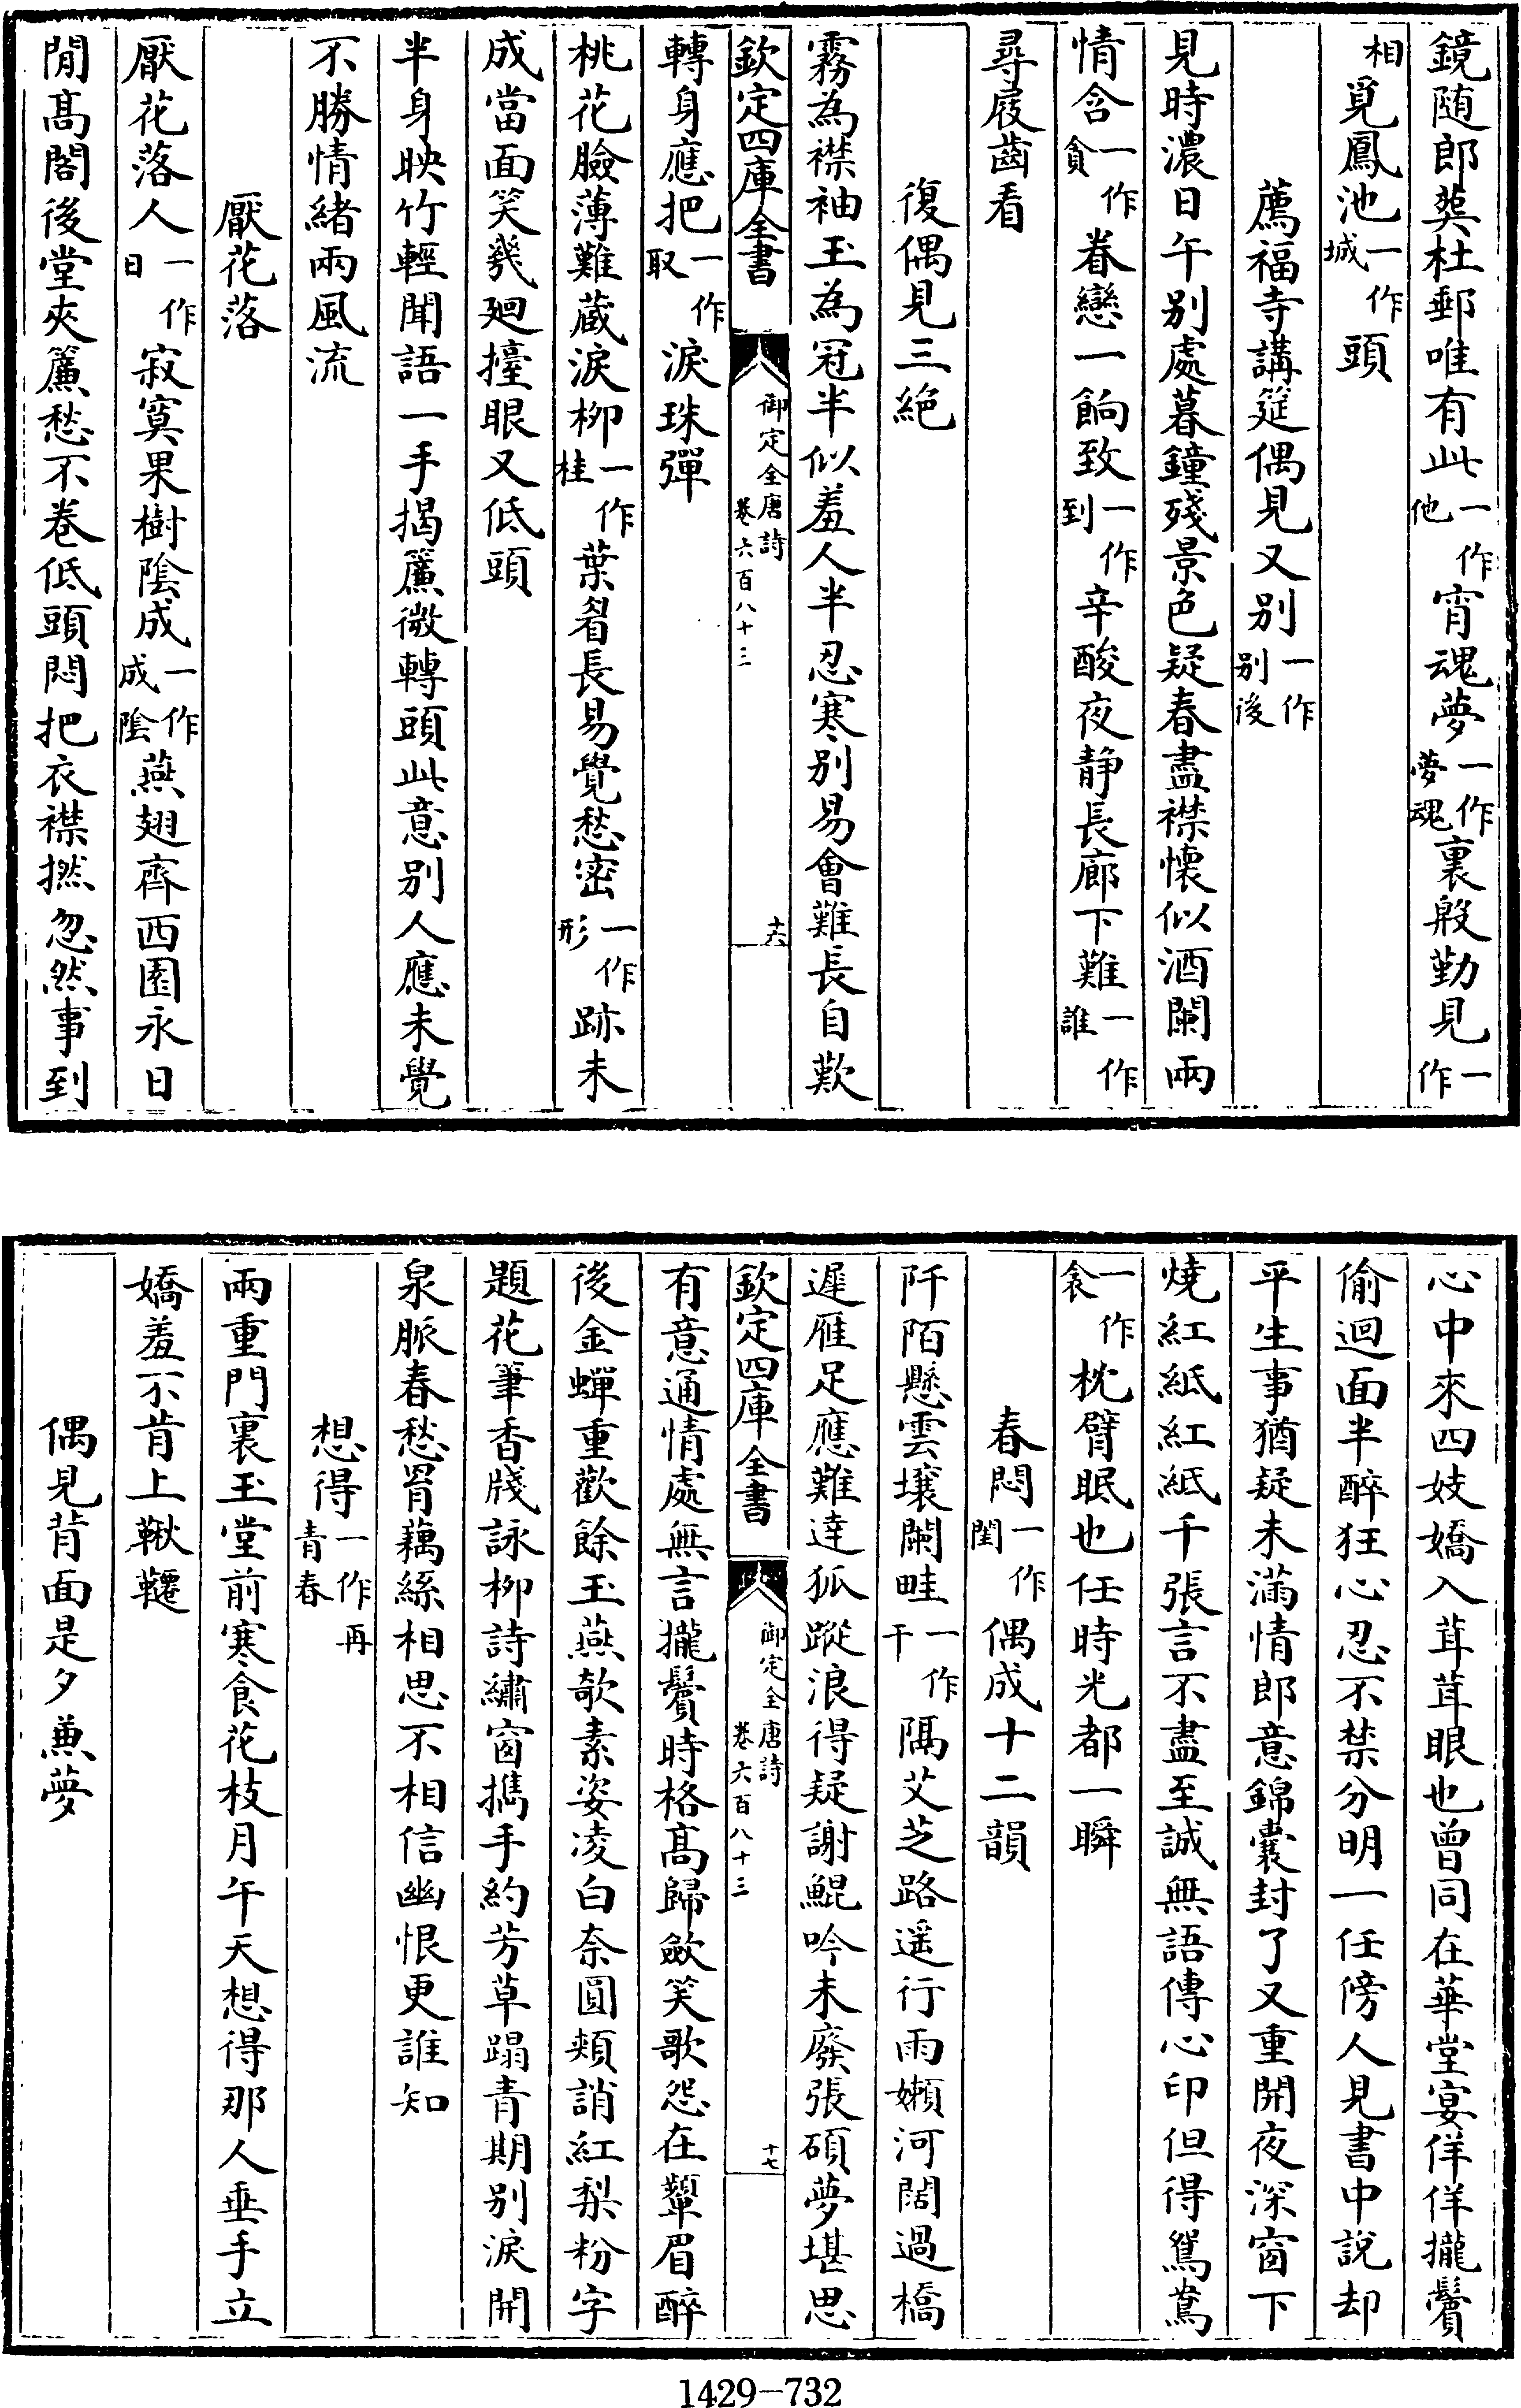 鏡随郎葬杜郵唯有此一作他宵魂夢一作夢魂裏殷勤見一作
相覓鳳池一作城頭
薦福寺講筵偶見又别一作别後
見時濃日午别處暮鐘殘景色疑春盡襟懷似酒闌兩
情含一作貪眷戀一餉致一作到辛酸夜静長廊下難一作誰
尋屐齒看
復偶見三絶
霧為襟袖玉為冠半似羞人半忍寒别易會難長自歎
欽定四庫全書 御定全唐詩卷六百八十三 十六
轉身應把一作取淚珠彈
桃花臉薄難藏淚柳一作桂葉眉長易覺愁密一作形跡未
成當面笑幾廻擡眼又低頭
半身映竹輕聞語一手揭簾微轉頭此意别人應未覺
不勝情緒兩風流
厭花落
厭花落人一作日寂寞果樹陰成一作成陰燕翅齊西園永日
閒髙閣後堂夾簾愁不卷低頭悶把衣襟撚忽然事到
心中來四妓嬌入茸茸眼也曾同在華堂宴佯佯攏鬢
偷迴面半醉狂心忍不禁分明一任傍人見書中說却
平生事猶疑未滿情郎意錦囊封了又重開夜深窗下
燒紅紙紅紙千張言不盡至誠無語傳心印但得鴛鴦
一作衾枕臂眠也任時光都一瞬
春悶一作閨偶成十二韻
阡陌懸雲壤闌畦一作干隔艾芝路遥行雨嬾河闊過橋
遲雁足應難達狐蹤浪得疑謝鯤吟未廢張碩夢堪思
欽定四庫全書 御定全唐詩卷六百八十三 十七
有意通情處無言攏鬢時格髙歸斂笑歌怨在顰眉醉
後金蟬重歡餘玉燕欹素姿凌白柰圓頰誚紅梨粉字
題花筆香牋詠柳詩繡窗擕手約芳草蹋青期别淚開
泉脈春愁罥藕絲相思不相信幽恨更誰知
想得一作再青春
兩重門裏玉堂前寒食花枝月午天想得那人垂手立
嬌羞不肯上鞦韆
偶見背面是夕兼夢
1429-732